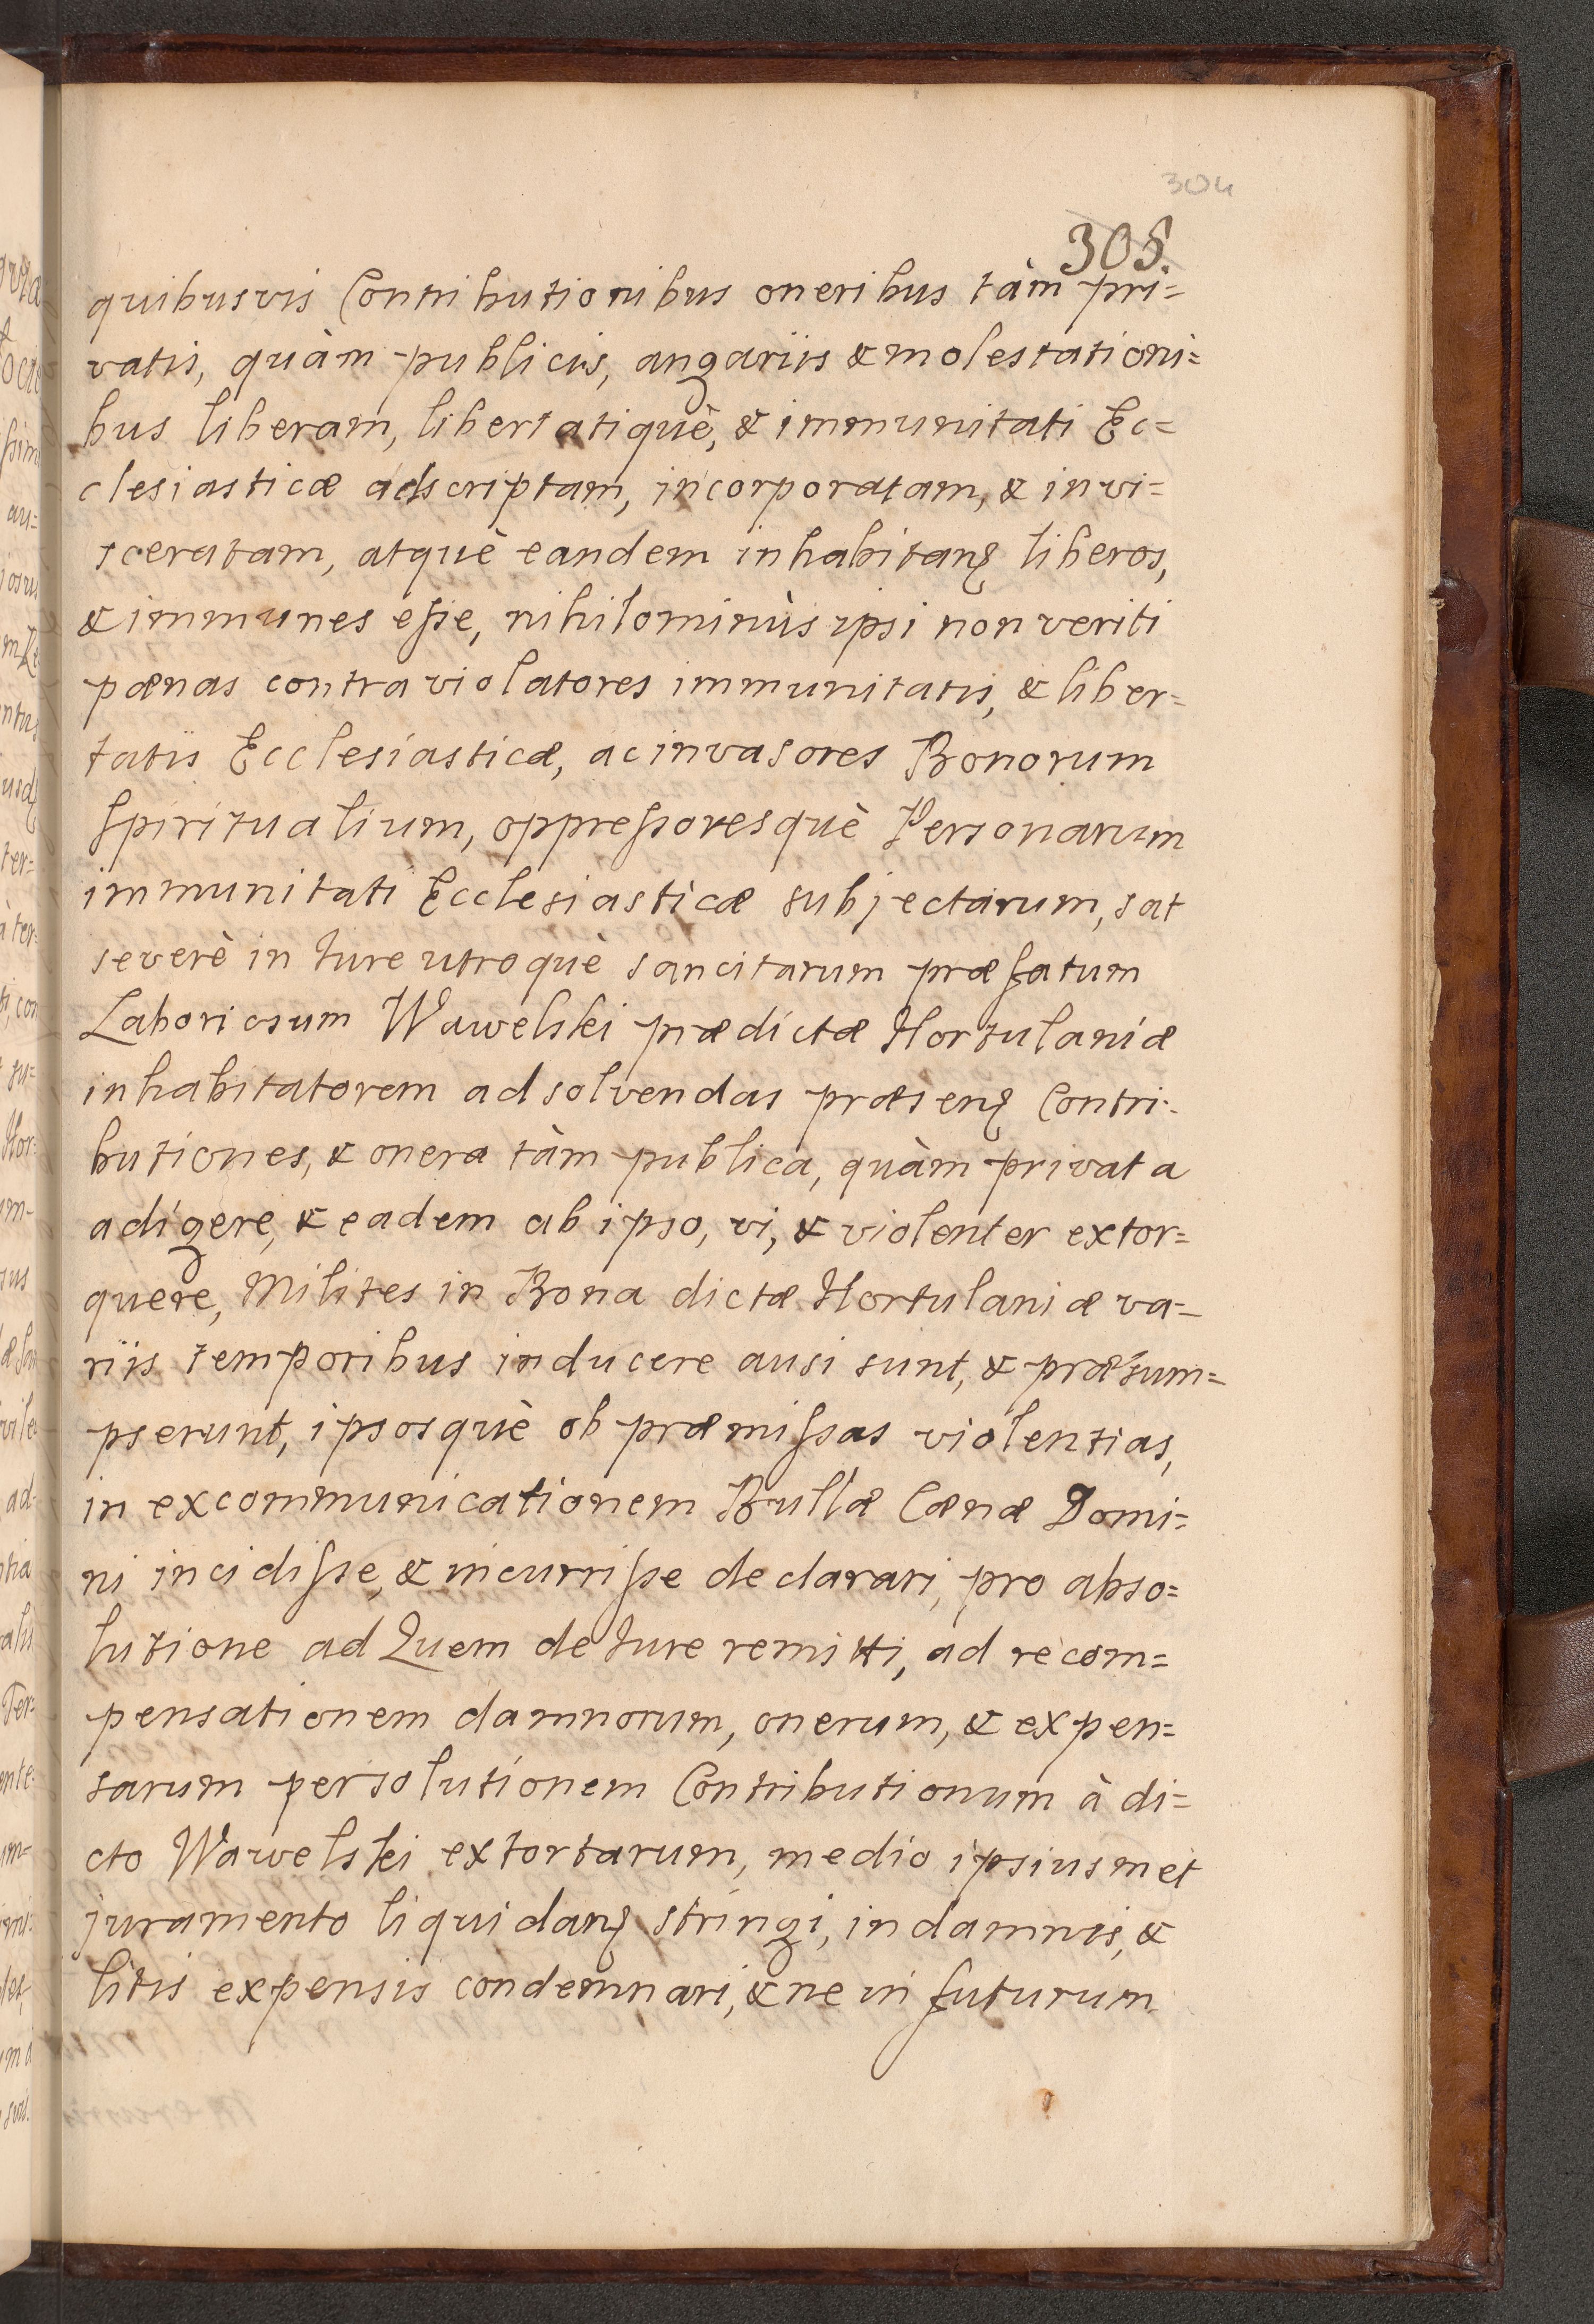 304
305.
quibusvis Contributionibus oneribus tàm pri=
vatis, quàm publicis, angariis & molestationi=
bus liberam, libertatiquè, & immunitati Ec=
clesiasticæ adscriptam, incorporatam, & invi=
sceratam, atquè eandem inhabitanꝫ liberos,
& immunes eſse, nihilominùs ipsi non veriti
pænas contra violatores immunitatis, & liber=
tatis Ecclesiasticæ, ac invasores Bonorum
Spiritualium, oppreſsoresquè Personarum
immunitati Ecclesiasticæ subjectarum, sat
severè in Jure utroquè sancitarum præfatum
Laboriosum Wawelski prædictæ Hortulaniæ
inhabitatorem ad solvendas præsenꝫ Contri=
butiones, & onera tàm publica, quàm privata
adigere, & eadem ab ipso, vi, & violenter extor=
quere, Milites in Bona dictæ Hortulaniæ va=
riis temporibus inducere ausi sunt, & præsum=
pserunt, ipsosquè ob præmiſsas violentias,
in excommunicationem Bullæ Cænæ Domi=
ni incidiſse, & incurriſse declarari, pro abso=
lutione ad Quem de Jure remitti, ad recom=
pensationem damnorum, onerum, & expen=
sarum persolutionem Contributionum à di=
cto Wawelski extortarum, medio ipsiusmet
juramento liquidanꝫ stringi, in damnis, &
litis expensis condemnari, & ne in futurum